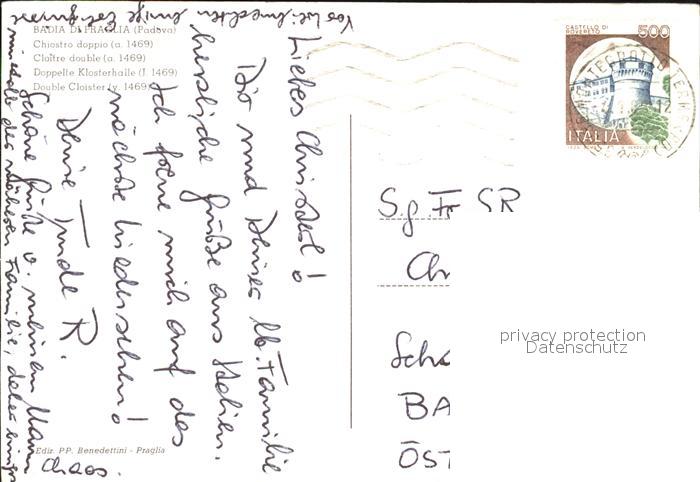 BADIA DI PRAGLIA (Padova)
Chiostro doppio (a. 1469)
Cloître double (a. 1469)
Doppelte Klosterhalle (J. 1469)
Double Cloister (y. 1469)
Liebes Christerl!
Dir und Deiner lb. Familie
herzliche Grüße aus Italien.
Ich freue mich auf das
nächste Wiedersehen!
Deine Trude R.
Schöne Grüße v. meinem Mann
Familie,
Chaos.
Ediz. PP. Benedettini - Praglia
CASTELLO DI
ROVERETO
500
ITALIA
S.g. Fr SR
Ch
Scho
BA
ÖST
privacy protection
Datenschutz